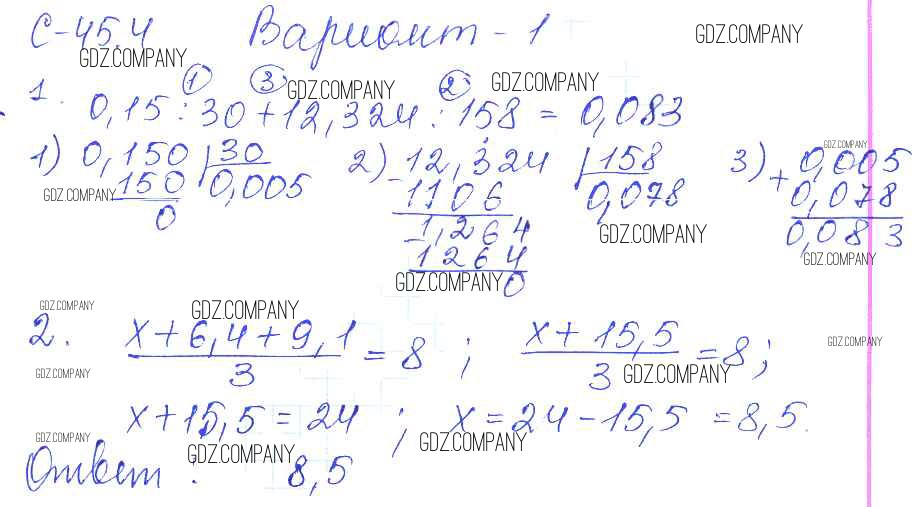 С-45.4 Вариант - 1
GDZ.COMPANY GDZ.COMPANY
1. ① ③ GDZ.COMPANY ② GDZ.COMPANY
0,15 : 30 + 12,324 : 158 = 0,083
GDZ.COMPANY
1) 0,150 30 2) 12,324 158 3) 0,005
GDZ.COMPANY 150 0,005 - 1106 0,078 + 0,078
0 1,264 GDZ.COMPANY 0,083
- 1264 GDZ.COMPANY
GDZ.COMPANY 0
GDZ.COMPANY GDZ.COMPANY
2. x + 6,4 + 9,1 / 3 = 8 ; x + 15,5 / 3 = 8 ; GDZ.COMPANY
GDZ.COMPANY GDZ.COMPANY
x + 15,5 = 24 ; x = 24 - 15,5 = 8,5.
GDZ.COMPANY GDZ.COMPANY GDZ.COMPANY
Ответ : 8,5